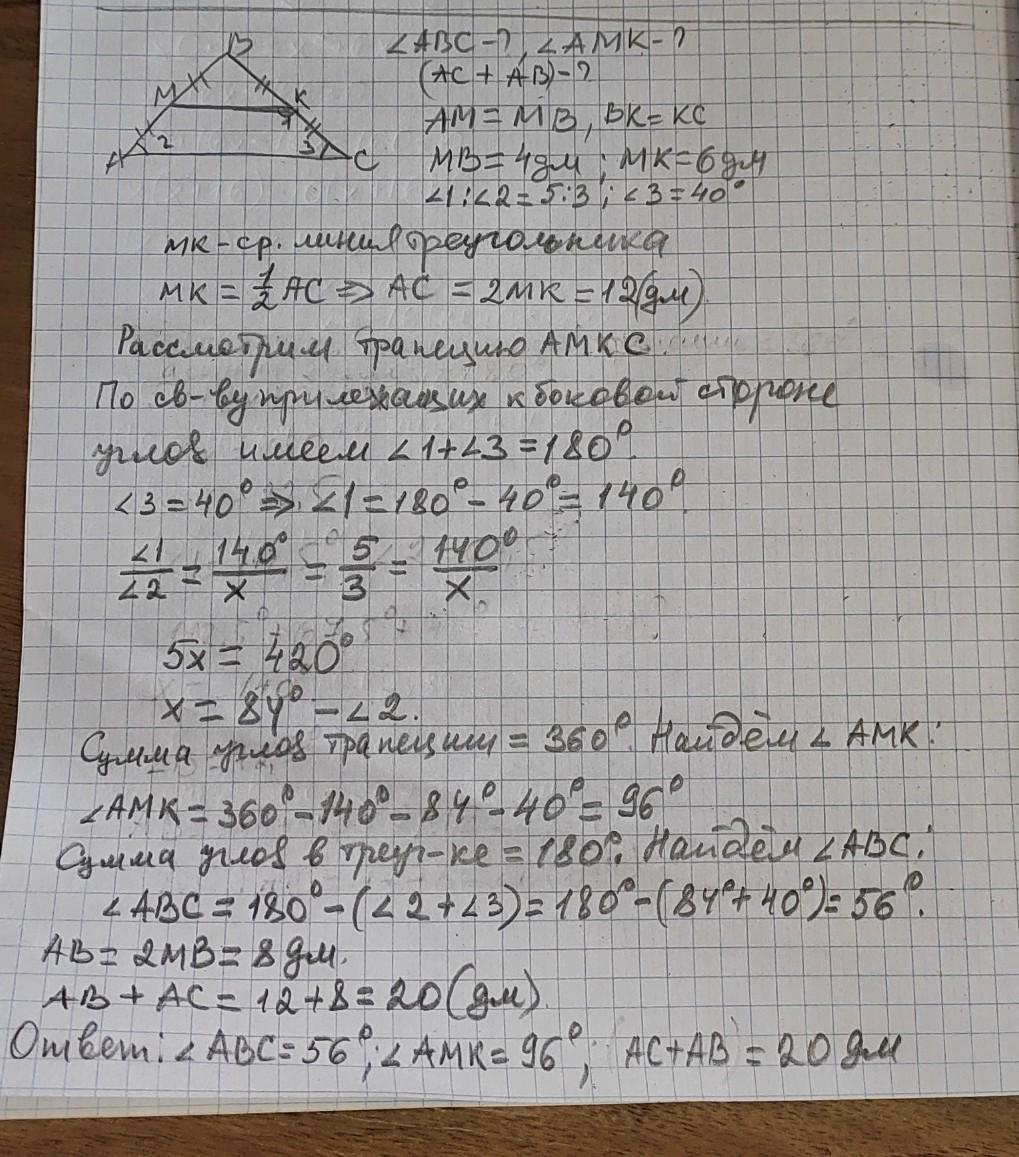 ∠ABC-?, ∠AMK-?
(AC + AB)-?
AM = MB, BK = KC
MB = 4дм ; MK = 6дм
∠1:∠2 = 5:3 ; ∠3 = 40°
B
M
K
1
A
2
3
C
MK - ср. линия треугольника
MK = 1/2 AC => AC = 2MK = 12(дм)
Рассмотрим трапецию AMKC
По св-ву прилежащих к боковой стороне
углов имеем ∠1+∠3 = 180°.
∠3 = 40° => ∠1 = 180° - 40° = 140°.
∠1/∠2 = 140°/x = 5/3 = 140°/x
5x = 420°
x = 84° - ∠2.
Сумма углов трапеции = 360°. Найдём ∠AMK:
∠AMK = 360° - 140° - 84° - 40° = 96°
Сумма углов в треуг-ке = 180°. Найдём ∠ABC:
∠ABC = 180° - (∠2 + ∠3) = 180° - (84° + 40°) = 56°.
AB = 2MB = 8 дм.
AB + AC = 12 + 8 = 20 (дм).
Ответ: ∠ABC = 56°; ∠AMK = 96°; AC + AB = 20 дм